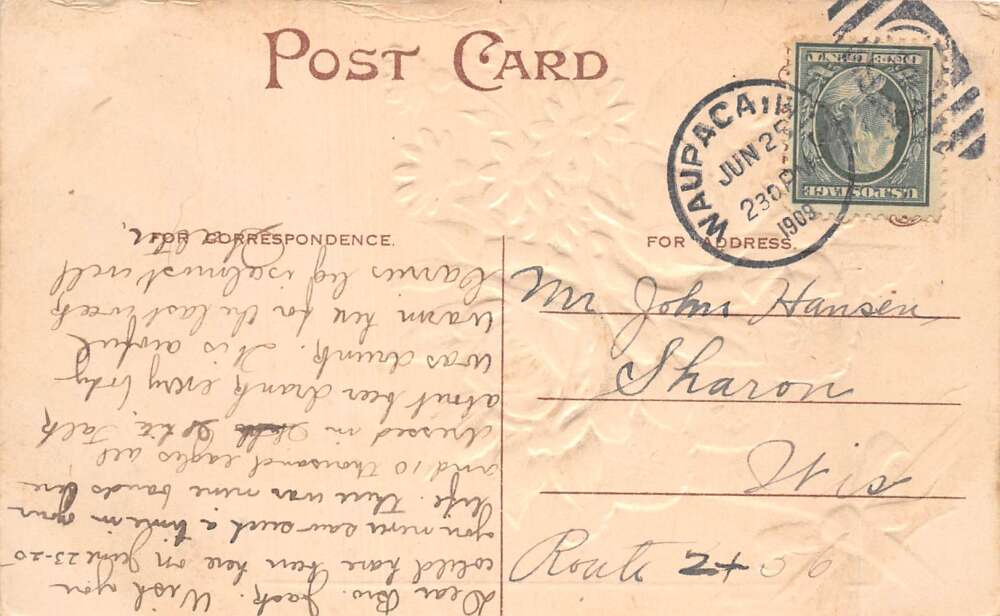 POST CARD
WAUPACA, WIS
JUN 25
230 PM
1909
U.S. POSTAGE
FOR CORRESPONDENCE.
Dear Bro. Jack. Wish you
could have been here on June 23-20
you never saw such a time in your
life. There was nine bands here
and 10 thousand eagles all
dressed in White. Talk
about beer drank every body
was drunk. It is awful
warm here for the last week
leg is almost well
FOR ADDRESS.
Mr. John Hansen,
Sharon
Wis
Route 2